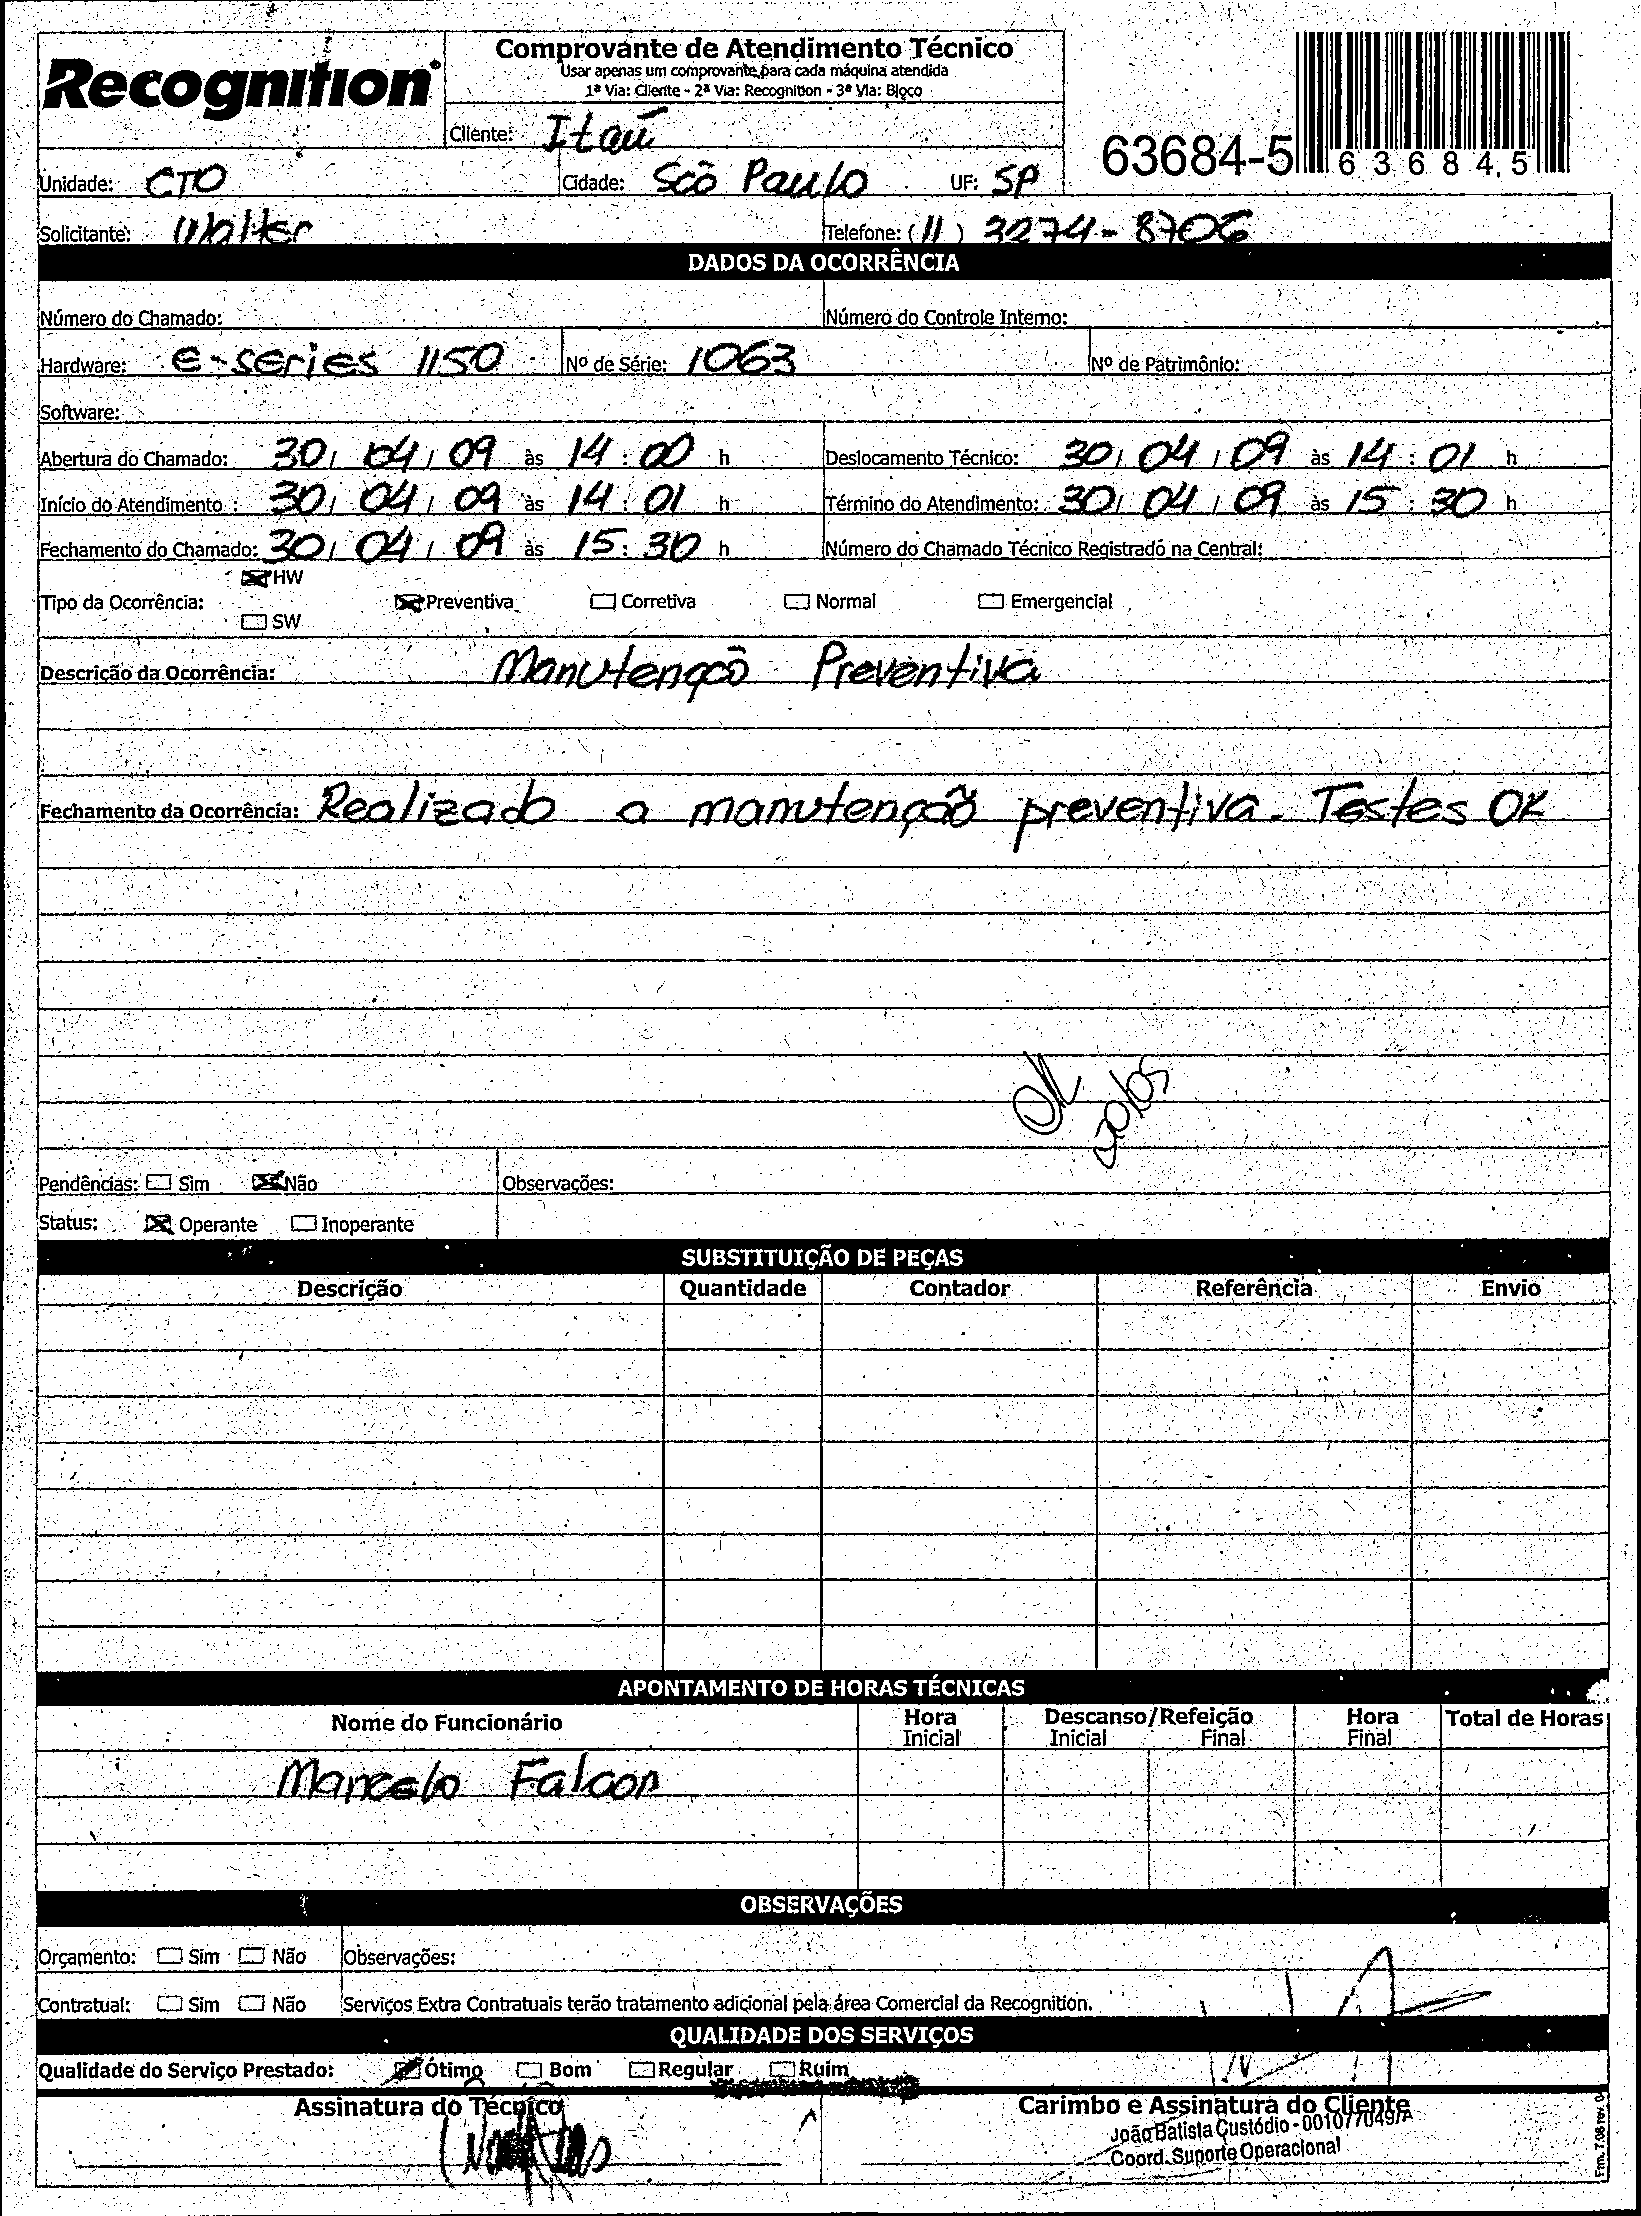 Recognition®
Comprovante de Atendimento Técnico
Usar apenas um comprovante para cada máquina atendida
1ª Via: Cliente - 2ª Via: Recognition - 3ª Via: Bloco
Cliente: Itaú
63684-5
6 3 6 8 4, 5
Unidade: CTO Cidade: São Paulo UF: SP
Solicitante: Walter Telefone: (11) 3274-8706
DADOS DA OCORRÊNCIA
Número do Chamado: Número do Controle Interno:
Hardware: e-series 1150 Nº de Série: 1063 Nº de Patrimônio:
Software:
Abertura do Chamado: 30/04/09 às 14:00 h Deslocamento Técnico: 30/04/09 às 14:01 h
Início do Atendimento: 30/04/09 às 14:01 h Término do Atendimento: 30/04/09 às 15:30 h
Fechamento do Chamado: 30/04/09 às 15:30 h Número do Chamado Técnico Registrado na Central:
HW
Tipo da Ocorrência: Preventiva Corretiva Normal Emergencial
SW
Descrição da Ocorrência: Manutenção Preventiva
Fechamento da Ocorrência: Realizado a manutenção preventiva. Testes OK
OK
Pendências: Sim Não Observações:
Status: Operante Inoperante
SUBSTITUIÇÃO DE PEÇAS
Descrição Quantidade Contador Referência Envio
APONTAMENTO DE HORAS TÉCNICAS
Nome do Funcionário Hora Inicial Descanso/Refeição Inicial Final Hora Final Total de Horas
Marcelo Falcon
OBSERVAÇÕES
Orçamento: Sim Não Observações:
Contratual: Sim Não Serviços Extra Contratuais terão tratamento adicional pela área Comercial da Recognition.
QUALIDADE DOS SERVIÇOS
Qualidade do Serviço Prestado: Ótimo Bom Regular Ruim
Assinatura do Técnico Carimbo e Assinatura do Cliente
João Batista Custódio - 001077049/A
Coord. Suporte Operacional